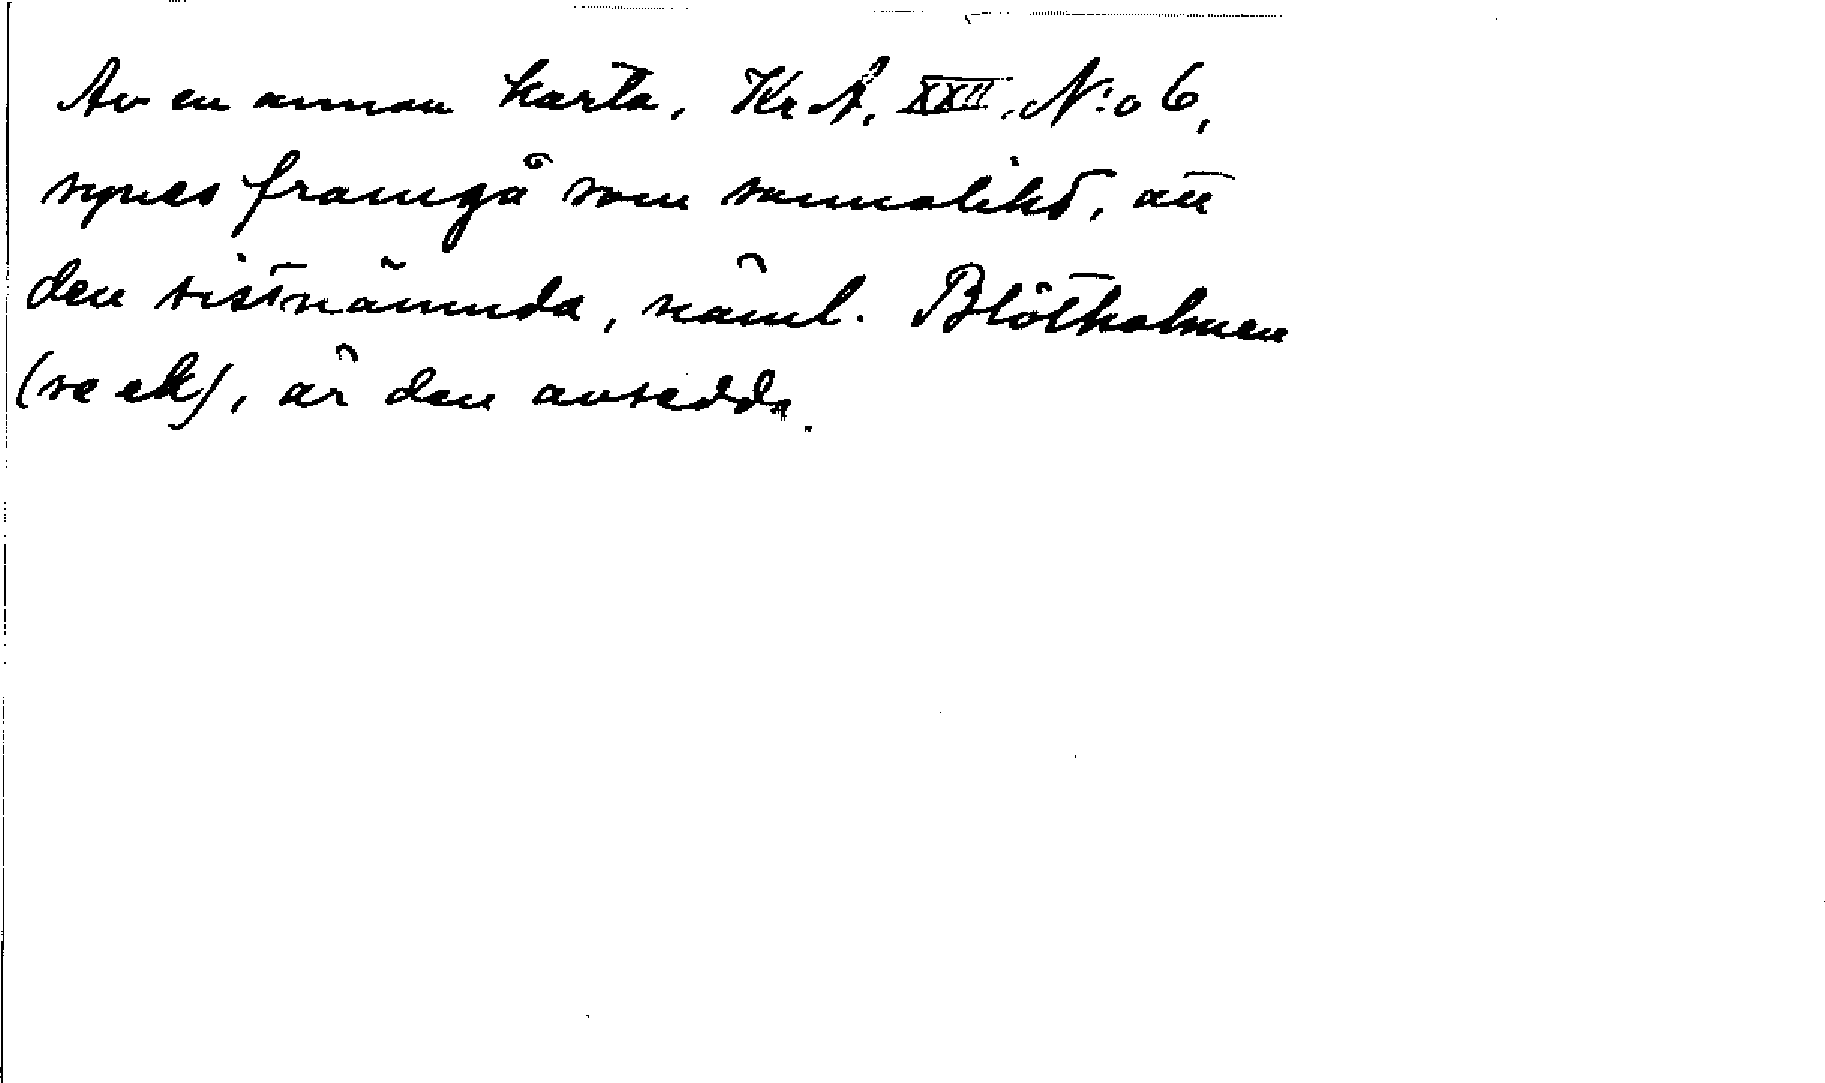 Av en annan karta, Kr A, XXII, N:o 6,
synes framgå som sannolikt, att
den sistnämnda, näml. Blötholmen
(se ek), är den avsedda.